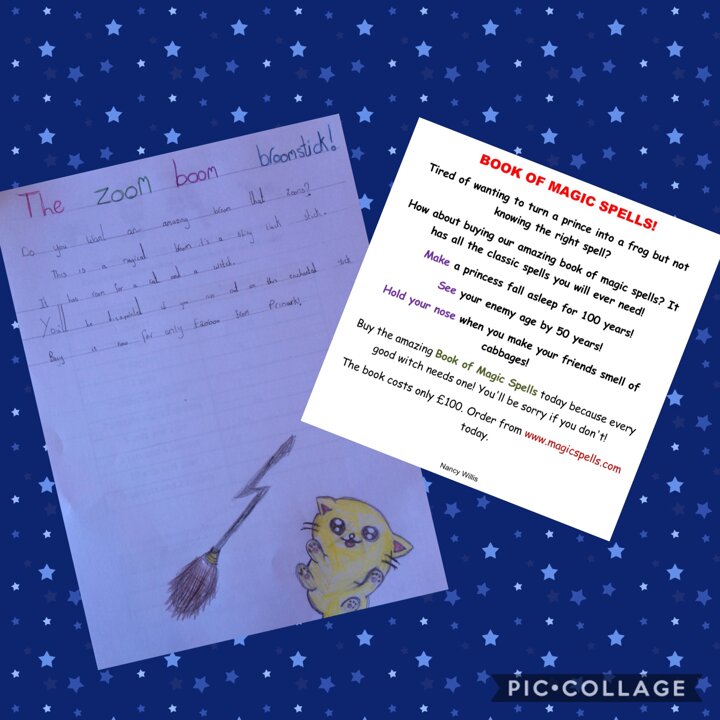 The zoom boom broomstick!
Do you want an amazing broom that zooms?
This is a magical broom it's a shiny black stick.
It has room for a cat and a witch.
You'll be disapointed if you miss out on this enchanted stick
Buy is now for only from Primark!
BOOK OF MAGIC SPELLS!
Tired of wanting to turn a prince into a frog but not
knowing the right spell?
How about buying our amazing book of magic spells? It
has all the classic spells you will ever need!
Make a princess fall asleep for 100 years!
See your enemy age by 50 years!
Hold your nose when you make your friends smell of
cabbages!
Buy the amazing Book of Magic Spells today because every
good witch needs one! You'll be sorry if you don't!
The book costs only £100. Order from www.magicspells.com
today.
Nancy Willis
PIC•COLLAGE